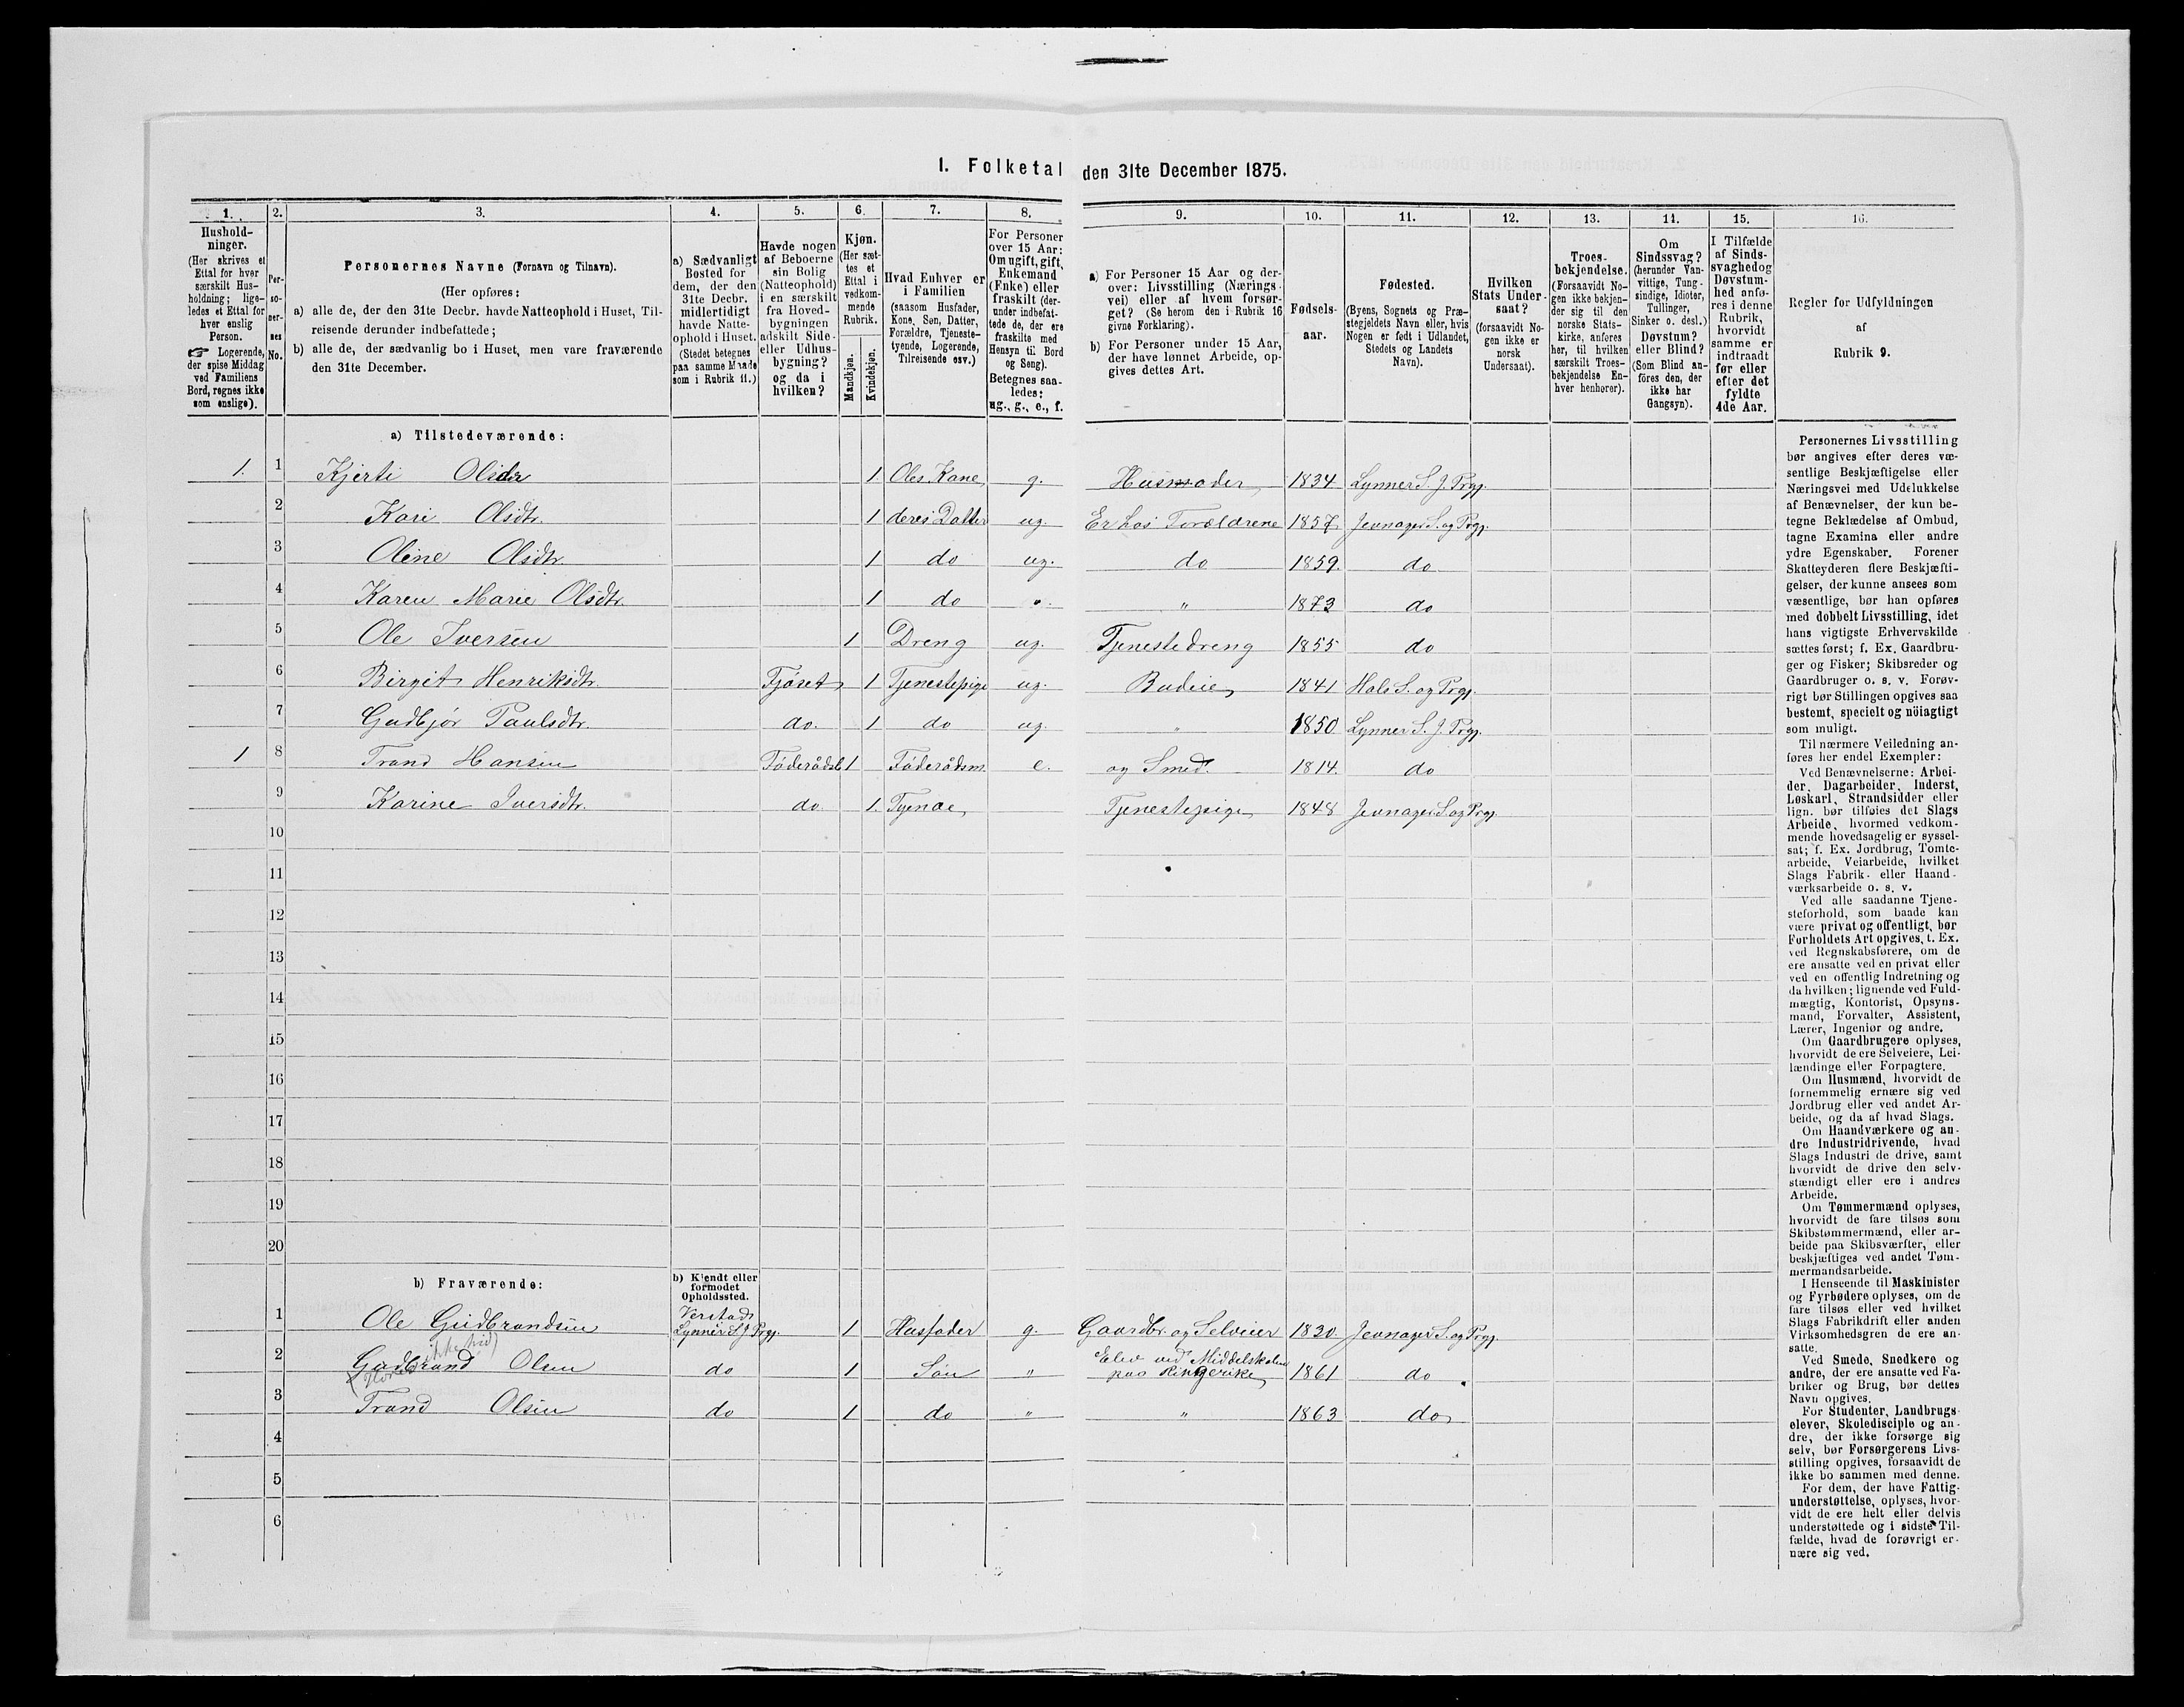 I. Folketal den 31te December 1875.
1. 2. 3. 4. 5. 6. 7. 8. 9. 10. 11. 12. 13. 14. 15. 16.
Hushold-
ninger.
(Her skrives et
Ettal for hver
særskilt Hus-
holdning; lige-
ledes et Ettal for
hver enslig
Person.
☞ Logerende,
der spise Middag
ved Familiens
Bord, regnes ikke
som enslige).
Per-
so-
ner-
nes
No.
Personernes Navne (Fornavn og Tilnavn).
(Her opføres:
a) alle de, der den 31te Decbr. havde Natteophold i Huset, Til-
reisende derunder indbefattede;
b) alle de, der sædvanlig bo i Huset, men vare fraværende
den 31te December.
a) Sædvanligt
Bosted for
dem, der den
31te Decbr.
midlertidigt
havde Natte-
ophold i Huset.
(Stedet betegnes
paa samme Maade
som i Rubrik 11.)
Havde nogen
af Beboerne
sin Bolig
(Natteophold)
i en særskilt
fra Hoved-
bygningen
adskilt Side-
eller Udhus-
bygning?
og da i
hvilken?
Kjøn.
(Her sæt-
tes et
Ettal i
vedkom-
mende
Rubrik.
Mandkjøn.
Kvindekjøn.
Hvad Enhver er
i Familien
(saasom Husfader,
Kone, Søn, Datter,
Forældre, Tjeneste-
tyende, Logerende,
Tilreisende osv.)
For Personer
over 15 Aar:
Om ugift, gift,
Enkemand
(Enke) eller
fraskilt (der-
under indbefat-
tede de, der ere
fraskilte med
Hensyn til Bord
og Seng).
Betegnes saa-
ledes:
ug., g., e., f.
a) For Personer 15 Aar og der-
over: Livsstilling (Nærings-
vei) eller af hvem forsør-
get? (Se herom den i Rubrik 16
givne Forklaring).
b) For Personer under 15 Aar,
der have lønnet Arbeide, op-
gives dettes Art.
Fødsels-
aar.
Fødested.
(Byens, Sognets og Præ-
stegjeldets Navn eller, hvis
Nogen er født i Udlandet,
Stedets og Landets
Navn).
Hvilken
Stats Under-
saat?
(forsaavidt No-
gen ikke er
norsk
Undersaat).
Troes-
bekjendelse.
(Forsaavidt No-
gen ikke bekjen-
der sig til den
norske Stats-
kirke, anføres
her, til hvilken
særskilt Troes-
bekjendelse En-
hver henhører).
Om
Sindssvag?
(herunder Van-
vittige, Tung-
sindige, Idioter,
Tullinger,
Sinker o. desl.)
Døvstum?
eller Blind?
(Som Blind an-
føres den, der
ikke har
Gangsyn).
I Tilfælde
af Sinds-
svaghed og
Døvstum-
hed anfø-
res i denne
Rubrik,
hvorvidt
samme er
indtraadt
før eller
efter det
fyldte
4de Aar.
Regler for Udfyldningen
af
Rubrik 9.
a) Tilstedeværende:
1. 1 Kjersti Olsdtr 1. Oles Kone g. Husmoder 1834 Lynner S. J. Prgj.
2 Kari Olsdtr. 1 deres Datter ug. Er hos Forældrene 1857. Jevnager S. og Prgj.
3 Oline Olsdtr. 1 do ug. do 1859. do
4 Karen Marie Olsdtr. 1 do " " 1873 do
5 Ole Iversen 1 Dreng ug. Tjenestedreng 1855 do
6 Birgit Henriksdtr. Fjøset 1 Tjenestepige ug. Budeie 1841 Hols S. og Prgj.
7 Gudbjør Paulsdtr. do. 1 do ug. " 1850 Lynner S. J. Prgj.
1 8 Trond Hansen Føderådsb 1 Føderådsm. e. og Smed. 1814. do
9 Karine Iversdtr. do. 1. Tyende Tjenestepige 1848 Jevnager S. og Prgj.
10
11
12
13
14
15
16
17
18
19
20
b) Fraværende:
b) Kjendt eller
formodet
Opholdssted.
1 Ole Gudbrandsen Verstad Lynner S. J. Prgj. 1 Husfader g. Gaardbr. og Selveier 1820. Jevnager S. og Prgj.
2 Gudbrand Olsen do 1 Søn " Elev ved Middelskolen paa Ringerike 1861 do
3 Trond Olsen do 1 do " " 1863 do
4
5
6
Personernes Livsstilling
bør angives efter deres væ-
sentlige Beskjæftigelse eller
Næringsvei med Udelukkelse
af Benævnelser, der kun be-
tegne Beklædelse af Ombud,
tagne Examina eller andre
ydre Egenskaber. Forener
Skatteyderen flere Beskjæfti-
gelser, der kunne ansees som
væsentlige, bør han opføres
med dobbelt Livsstilling, idet
hans vigtigste Erhvervskilde
sættes først; f. Ex. Gaardbru-
ger og Fisker; Skibsreder og
Gaardbruger o. s. v. Forøv-
rigt bør Stillingen opgives saa
bestemt, specielt og nöiagtigt
som muligt.
Til nærmere Veiledning an-
føres her endel Exempler:
Ved Benævnelserne: Arbei-
der, Dagarbeider, Inderst,
Løskarl, Strandsidder eller
lign. bør tilføies det Slags
Arbeide, hvormed vedkom-
mende hovedsagelig er syssel-
sat; f. Ex. Jordbrug, Tomte-
arbeide, Veiarbeide, hvilket
Slags Fabrik- eller Haand-
værksarbeide o. s. v.
Ved alle saadanne Tjene-
steforhold, som baade kan
være privat og offentligt, bør
Forholdets Art opgives, t. Ex.
ved Regnskabsførere, om de
ere ansatte ved en privat eller
ved en offentlig Indretning og
da hvilken; lignende ved Fuld-
mægtig, Kontorist, Opsyns-
mand, Forvalter, Assistent,
Lærer, Ingeniør og andre.
Om Gaardbrugere oplyses,
hvorvidt de ere Selveiere, Lei-
lændinge eller Forpagtere.
Om Husmænd, hvorvidt de
fornemmelig ernære sig ved
Jordbrug eller ved andet Ar-
beide, og da af hvad Slags.
Om Haandværkere og an-
dre Industridrivende, hvad
Slags Industri de drive, samt
hvorvidt de drive den selv-
stændigt eller ere i andres
Arbeide.
Om Tømmermænd oplyses,
hvorvidt de fare tilsøs som
Skibstømmermænd, eller ar-
beide paa Skibsværfter, eller
beskjæftiges ved andet Tøm-
mermandsarbeide.
I Henseende til Maskinister
og Fyrbødere oplyses, om de
fare tilsøs eller ved hvilket
Slags Fabrikdrift eller anden
Virksomhedsgren de ere an-
satte.
Ved Smede, Snedkere og
andre, der ere ansatte ved Fa-
briker og Brug, bør dettes
Navn opgives.
For Studenter, Landbrugs-
elever, Skoledisciple og an-
dre, der ikke forsørge sig
selv, bør Forsørgerens Livs-
stilling opgives, forsaavidt de
ikke bo sammen med denne.
For dem, der have Fattig-
understøttelse, oplyses, hvor-
vidt de ere helt eller delvis
understøttede og i sidste Til-
fælde, hvad de forøvrigt er-
nære sig ved.